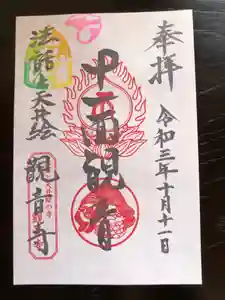 奉拝
令和三年十月十一日
十一面観音
法話と天井絵
観音寺
天井絵の寺